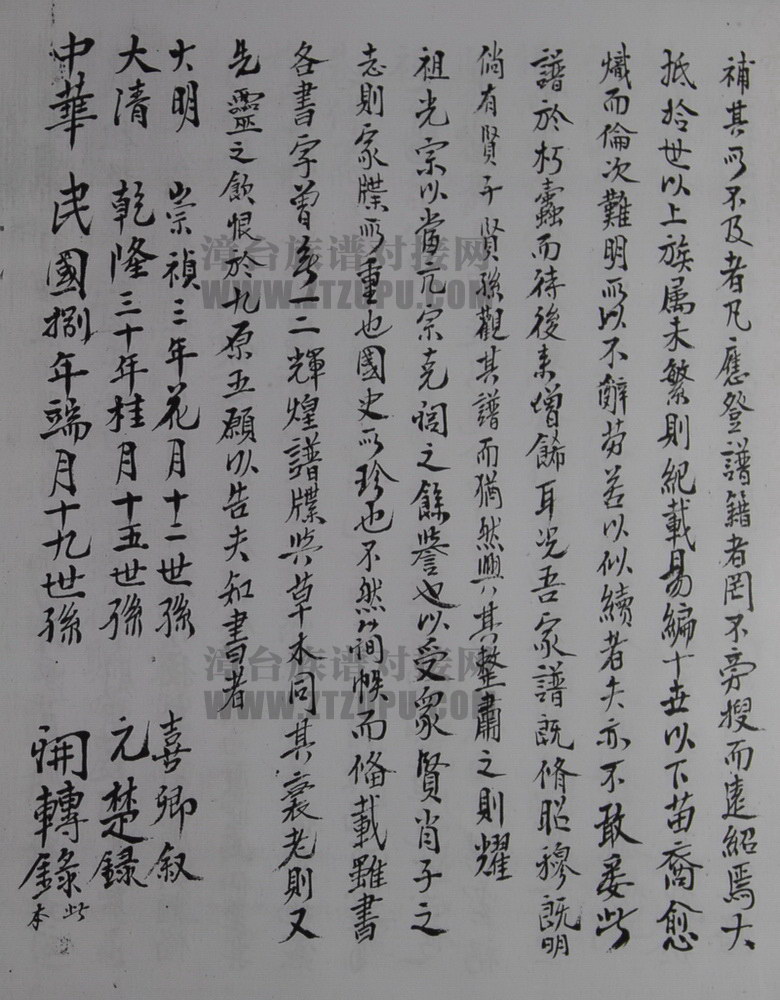 補其所不及者凡應登譜籍者罔不旁搜而遠紹焉大
抵拾世以上族属未繁則紀載易編十世以下苗裔愈
熾而倫次難明所以不辭劳若以似續者夫亦不敢委此
譜於朽蠹而待後来增餙耳况吾家譜既脩昭穆既明
倘有賢子賢孫觀其譜而猶然興其整肅之則耀
祖光宗以當亢宗克祠之餘誉也以受衆賢肖子之
志則家牒所重也國史所珍也不然以簡帙而俻載雖書
各書字曾無一二輝煌譜牒與草木同其衰老則又
先靈之飲恨於九原五願以告夫知書者
大明 崇禎三年花月十二世孫 喜卿叙
大清 乾隆三十年桂月十五世孫 元楚録
中華 民國捌年端月十九世孫 開轉錄此本
漳台族谱对接网
WWW.ZTZUPU.COM
漳台族谱对接网
WWW.ZTZUPU.COM